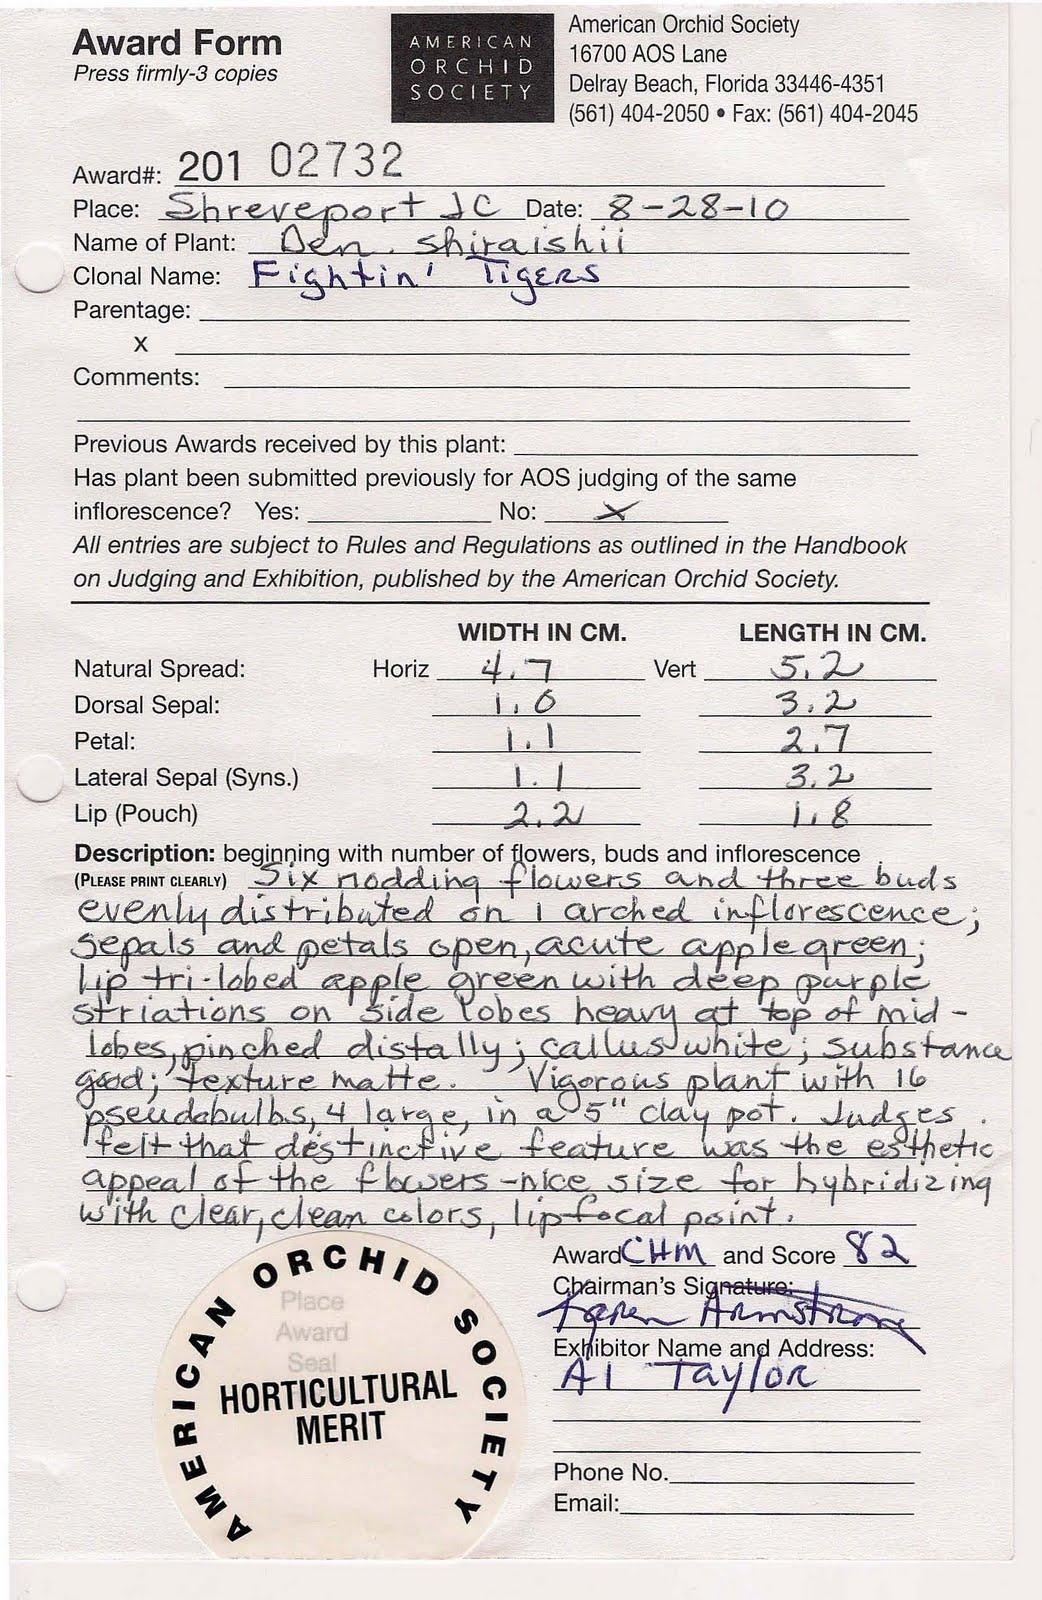 Award Form
Press firmly-3 copies
AMERICAN
ORCHID
SOCIETY
American Orchid Society
16700 AOS Lane
Delray Beach, Florida 33446-4351
(561) 404-2050 • Fax: (561) 404-2045
Award#: 201 02732
Place: Shreveport JC Date: 8-28-10
Name of Plant: Den. shiraishii
Clonal Name: Fightin' Tigers
Parentage:
x
Comments:
Previous Awards received by this plant:
Has plant been submitted previously for AOS judging of the same
inflorescence? Yes: No: X
All entries are subject to Rules and Regulations as outlined in the Handbook
on Judging and Exhibition, published by the American Orchid Society.
WIDTH IN CM. LENGTH IN CM.
Natural Spread: Horiz 4.7 Vert 5.2
Dorsal Sepal: 1.0 3.2
Petal: 1.1 2.7
Lateral Sepal (Syns.) 1.1 3.2
Lip (Pouch) 2.2 1.8
Description: beginning with number of flowers, buds and inflorescence
(PLEASE PRINT CLEARLY) Six nodding flowers and three buds
evenly distributed on 1 arched inflorescence;
sepals and petals open, acute apple green;
lip tri-lobed apple green with deep purple
striations on side lobes heavy at top of mid-
lobes, pinched distally; callus white; substance
good; texture matte. Vigorous plant with 16
pseudobulbs, 4 large, in a 5" clay pot. Judges
felt that distinctive feature was the esthetic
appeal of the flowers - nice size for hybridizing
with clear, clean colors, lip focal point.
Award CHM and Score 82
Chairman's Signature:
Karen Armstrong
Exhibitor Name and Address:
Al Taylor
Phone No.
Email:
AMERICAN ORCHID SOCIETY
Place
Award
Seal
HORTICULTURAL
MERIT